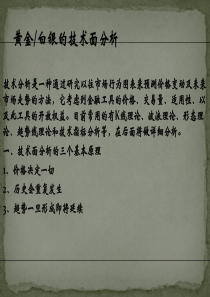 黄金/白银的技术面分析
技术分析是一种通过研究以往市场行为图来来预测价格变动及未来
市场走势的方法，它考虑到金融工具的价格、交易量、适用性、以
及此工具的开放权益。目前常用的有K线理论、波浪理论、形态理
论、趋势线理论和技术指标分析等，在后面将做详细分析。
一、技术面分析的三个基本原理
1、价格决定一切
2、历史会重复发生
3、趋势一旦形成即将延续